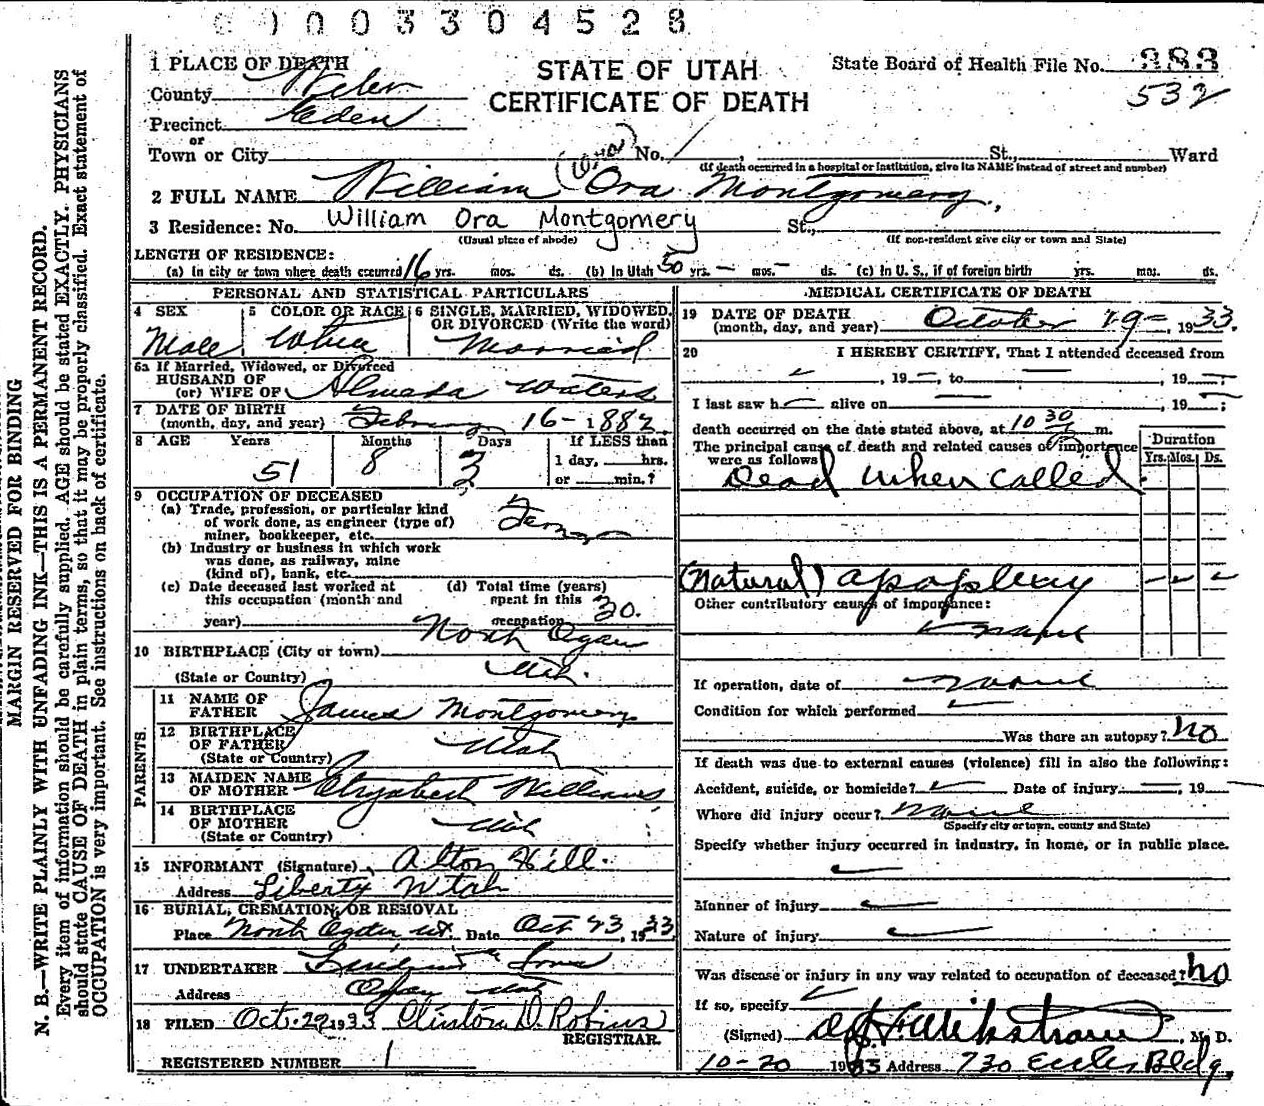 0003304528
1 PLACE OF DEATH
County Weber
Precinct Eden
or
Town or City No. , St., Ward
(If death occurred in a hospital or institution, give its NAME instead of street and number)
STATE OF UTAH
CERTIFICATE OF DEATH
State Board of Health File No. 383
532
2 FULL NAME William Ora Montgomery
3 Residence: No. William Ora Montgomery St.,
(Usual place of abode) (If non-resident give city or town and State)
LENGTH OF RESIDENCE:
(a) In city or town where death occurred 16 yrs. mos. ds. (b) In Utah 50 yrs. – mos. – ds. (c) In U. S., if of foreign birth yrs. mos. ds.
PERSONAL AND STATISTICAL PARTICULARS
4 SEX 5 COLOR OR RACE 6 SINGLE, MARRIED, WIDOWED, OR DIVORCED (Write the word)
Male White Married
6a If Married, Widowed, or Divorced
HUSBAND OF
(or) WIFE OF Almada Waters
7 DATE OF BIRTH
(month, day, and year) February 16-1882
8 AGE Years Months Days If LESS than
51 8 3 1 day, hrs.
or min.?
9 OCCUPATION OF DECEASED
(a) Trade, profession, or particular kind
of work done, as engineer (type of)
miner, bookkeeper, etc.
(b) Industry or business in which work
was done, as railway, mine
(kind of), bank, etc.
(c) Date deceased last worked at
this occupation (month and
year)
(d) Total time (years)
spent in this
occupation 30.
10 BIRTHPLACE (City or town) North Ogden
(State or Country) Utah.
PARENTS.
11 NAME OF
FATHER James Montgomery
12 BIRTHPLACE
OF FATHER Utah
(State or Country)
13 MAIDEN NAME
OF MOTHER Elizabeth Williams
14 BIRTHPLACE
OF MOTHER Utah
(State or Country)
15 INFORMANT (Signature) Alton Hill.
Address Liberty Utah
16 BURIAL, CREMATION, OR REMOVAL
Place North Ogden Ut. Date Oct 23, 1933
17 UNDERTAKER Sons
Address Ogden Utah
18 FILED Oct. 29 1933 Clinton D. Robins
REGISTRAR.
REGISTERED NUMBER 1
MEDICAL CERTIFICATE OF DEATH
19 DATE OF DEATH
(month, day, and year) October 19- 1933.
20 I HEREBY CERTIFY, That I attended deceased from
, 19 –, to – , 19 – ;
I last saw h – alive on – , 19 – ;
death occurred on the date stated above, at 10 30 m.
The principal cause of death and related causes of importance
were as follows Duration
Yrs. Mos. Ds.
Dead when called.
(Natural) apoplexy
Other contributory causes of importance:
none
If operation, date of none
Condition for which performed
Was there an autopsy? no
If death was due to external causes (violence) fill in also the following:
Accident, suicide, or homicide? Date of injury , 19
Where did injury occur? none
(Specify city or town, county and State)
Specify whether injury occurred in industry, in home, or in public place.
Manner of injury
Nature of injury
Was disease or injury in any way related to occupation of deceased? no
If so, specify
(Signed) , M. D.
10-20 1933 Address 730 Eccles Bldg.
MARGIN RESERVED FOR BINDING
N. B.—WRITE PLAINLY WITH UNFADING INK—THIS IS A PERMANENT RECORD.
Every item of information should be carefully supplied. AGE should be stated EXACTLY. PHYSICIANS
should state CAUSE OF DEATH in plain terms, so that it may be properly classified. Exact statement of
OCCUPATION is very important. See instructions on back of certificate.